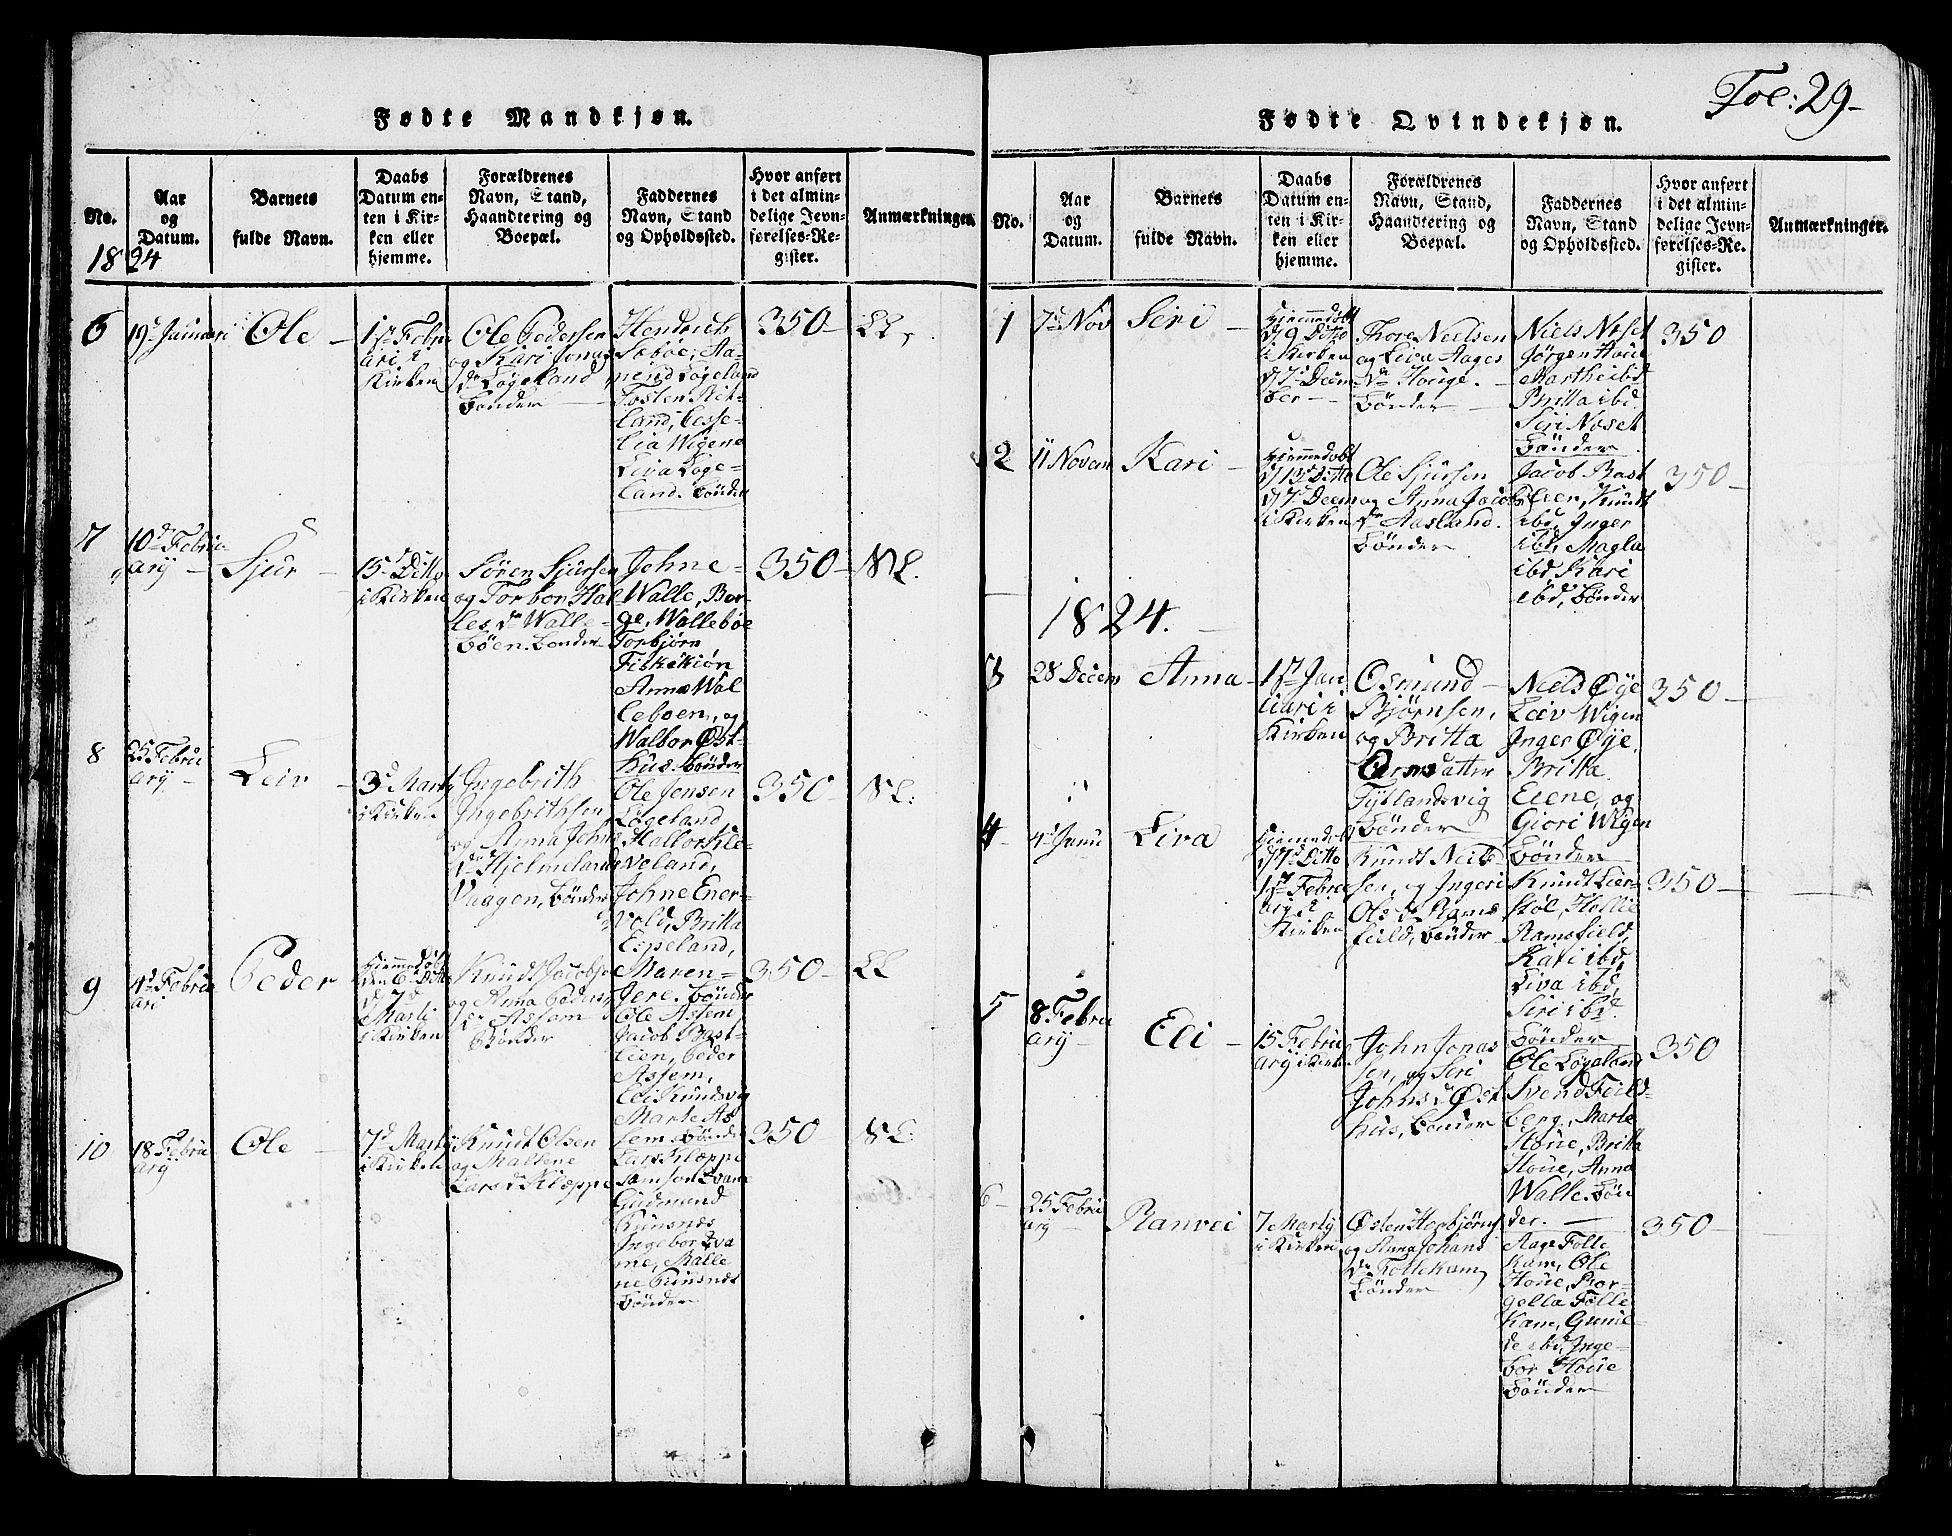 Fol: 29-
Fødte Mandkjøn.
No.
Aar
og
Datum.
Barnets
fulde Navn.
Daabs
Datum en-
ten i Kir-
ken eller
hjemme.
Forældrenes
Navn, Stand,
Haandtering og
Boepæl.
Faddernes
Navn, Stand
og Opholdssted.
Hvor anført
i det almin-
delige Jevn-
førelses-Re-
gister.
Anmærkninger.
1824
6
19d Januari
Ole
1st Febru
ari i
Kirken
Ole Pedersen
og Kari Jonas
dr Løgeland
Bønder
Hendrich
Sæbøe, Aa-
nend Løgeland
Tosten Rit-
land, Cesse-
lia Wigene
Liva Løge-
land. Bønder
350
7
10d Febru
ary
Sjur
15 Ditto
i Kirken
Søren Sjursen
og Torbor Hal-
les dr Walle-
Böen. Bönder
Johne
Walle, Bør-
ge, Wallebøe
Torbjørn
Fiskekiön
Anna Wal
leboen, og
Walbor Øst-
hus. Bønder
350
8
25 Febru
ary
Leiv
3d Marty
i Kirken
Ingebrith
Ingebrithsen
og Anna Johns
dr Hjelmeland
Vaagen, Bönder
Ole Jensen
Løgeland
Hallor Kle-
voland,
Johne Ener-
vold, Britta
Espeland,
Maren
Jere. Bönder
350
9
4d Febru
ari
Peder
Hiemmedøbt
den 6 Ditto
d 7d
Marti
i Kirken
Knud Jacobs
og Anna Peders
dr Assem
Bönder
Ole Assem
Jacob Bast-
lien, Peder
Assem,
Eli Knudsvig
Marte As
sem Bönder
350
10
18 Febru
ary
Ole
7d Marty
i Kirken
Knudt Olsen
og Maltene
Lars dr Klæppe
Lars Klæppe
Samson Evane
Gudmund
Ingebor Eva
ne, Malle
Bönder
350
Fødte Qvindekjøn.
No.
Aar
og
Datum.
Barnets
fulde Navn.
Daabs
Datum en-
ten i Kir-
ken eller
hjemme.
Forældrenes
Navn, Stand,
Haandtering og
Boepæl.
Faddernes
Navn, Stand
og Opholdssted.
Hvor anført
i det almin-
delige Jevn-
førelses-Re-
gister.
Anmærkninger.
1
7d Nov
Siri
Hiemmedøbt
d 9 Ditto
i Kirken
d 7d Decem
ber
Thore Nielsen
og Liva Aages
dr Houge.
Bönder
Niels Nøset
Jörgen Houe
Marthe ibd
Britta ibd.
Siri Nøset
Bönder
350
2
11 Novem
Kari
Hiemmedøbt
d 13d Ditto
d 7d Decem
i Kirken
Ole Sjursen
og Anna Jacobs
dr Aasland.
Bönder
Jacob Bast
lien, Knudt
ibd, Inger
ibd, Magla
ibd Kari
ibd, Bönder
350
1824.
3
28 Decem
Anna
1st Jan
uari i
Kirken
Osmund
Bjørnsen,
og Britta
Orms datter
Tytlandsvig
Bönder
Niels Øye
Leiv Wigen
Inger Øye,
Britta
Eiene, og
Giori Wigen
Bönder
350
4
4d Janu
Liva
Hiemmedøbt
d 7d Ditto
1st Febru
ary i
Kirken
Knudt Niel-
sen, og Ingeri
Ols dr Rams
field, Bönder
Knudt Lier-
støl, Hellie
Ramsfield,
Kari ibd,
Liva ibd,
Siri ibd.
Bönder
350
5
8 Febru
ary
Eli
15 Febru
ary i Kirken
John Jonas
sen, og Siri
Johns dr Øst
hus, Bönder
Ole Løgeland
Svend Field-
berg, Marte
Houe, Britta
Houe, Anna
Walle. Bön
der.
350
6
25 Febru
ary
Ranvei
7 Marty
i Kirken
Østen Herbjørns
og Anna Johans
dr Follekam
Bönder
Aage Folle
kam, Ole
Houe, Bor-
gella Folle
Kam, Gunil
de ibd, Inge-
bor Houe
Bönder
350